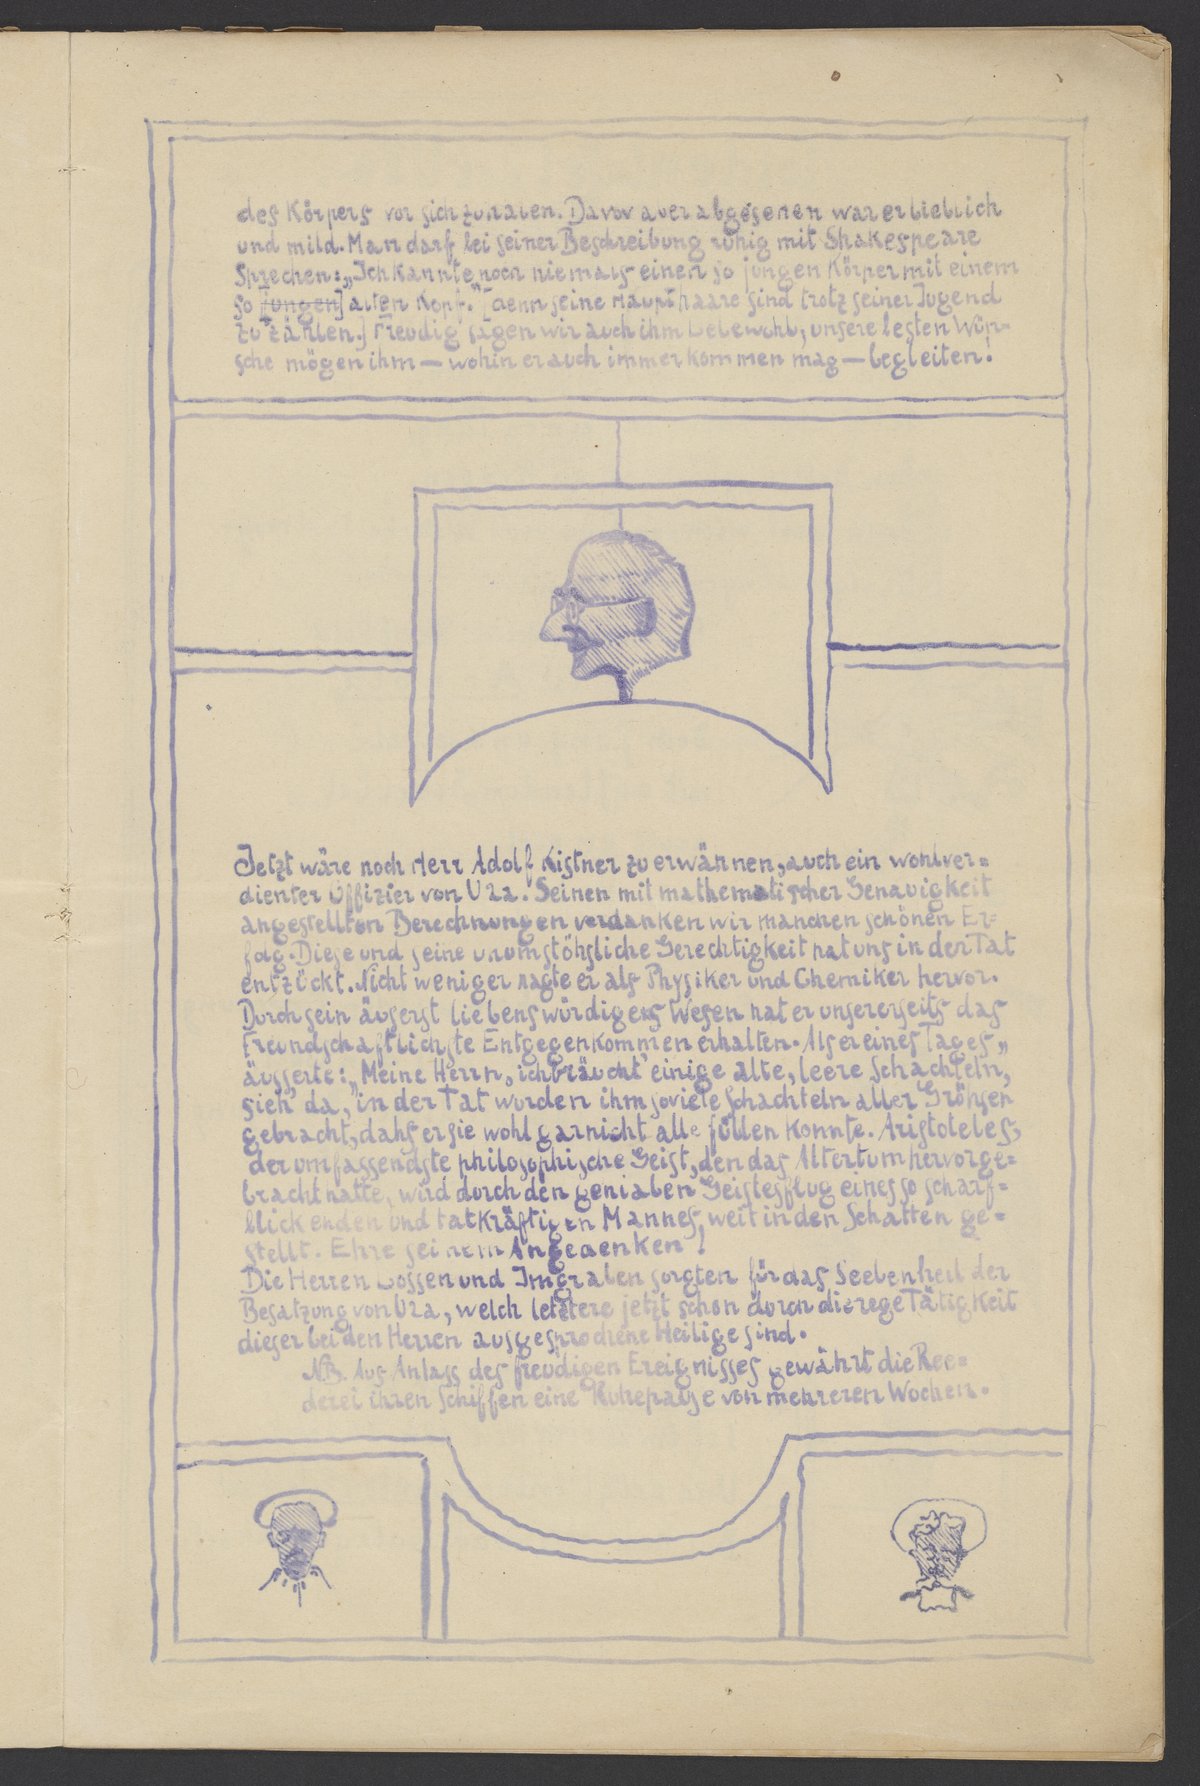 des Körpers vor sich zu halen. Davor aber abgesehen war er lieblich
und mild. Man darf bei seiner Beschreibung ruhig mit Shakespeare
Sprechen: „Ich kannte noch niemals einen so jungen Körper mit einem
so [jungen] alten Kopf." [denn seine Haupthaare sind trotz seiner Jugend
zu zählen.] Freudig sagen wir auch ihm Lebewohl, unsere besten Wün-
sche mögen ihm — wohin er auch immer kommen mag — begleiten!
Jetzt wäre noch Herr Adolf Kistner zu erwähnen, auch ein wohlver=
dienter Offizier von U2a. Seinen mit mathematischer Genauigkeit
angestellten Berechnungen verdanken wir manchen schönen Er-
folg. Diese und seine unumstöhsliche Gerechtigkeit hat uns in der Tat
entzückt. Nicht weniger ragte er als Physiker und Chemiker hervor.
Durch sein äuserst liebenswürdiges Wesen hat er unsererseits das
Freundschaftlichste Entgegenkommen erhalten. Als er eines Tages „
äusserte: „Meine Herrn, ich bräucht' einige alte, leere Schachteln,
sieh' da, in der Tat wurden ihm soviele Schachteln aller Gröhsen
gebracht, dahs er sie wohl garnicht alle füllen konnte. Aristoteles,
der umfassendste philosophische Geist, den das Altertum hervorge=
bracht hatte, wird durch den genialen Geistesflug eines so scharf=
blickenden und tatkräftigen Mannes, weit in den Schatten ge=
stellt. Ehre seinem Angedenken!
Die Herren Lossen und Imgraben sorgten für das Seelenheil der
Besatzung von U2a, welch letztere jetzt schon durch die rege Tätigkeit
dieser beiden Herren ausgesprochene Heilige sind.
NB. Aus Anlass des freudigen Ereignisses gewährt die Ree=
derei ihren Schiffen eine Ruhepause von mehreren Wochen.